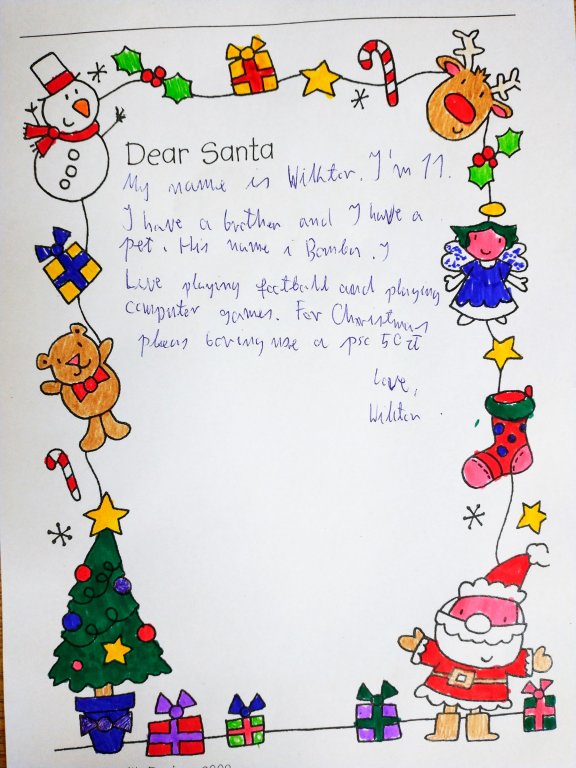 Dear Santa
My name is Wiktor. I'm 11.
I have a brother and I have a
pet. His name i Bomba. I
Love playing football and playing
computer games. For Christmas
pleas bring use a psc 50 zł
Love,
Wiktor.